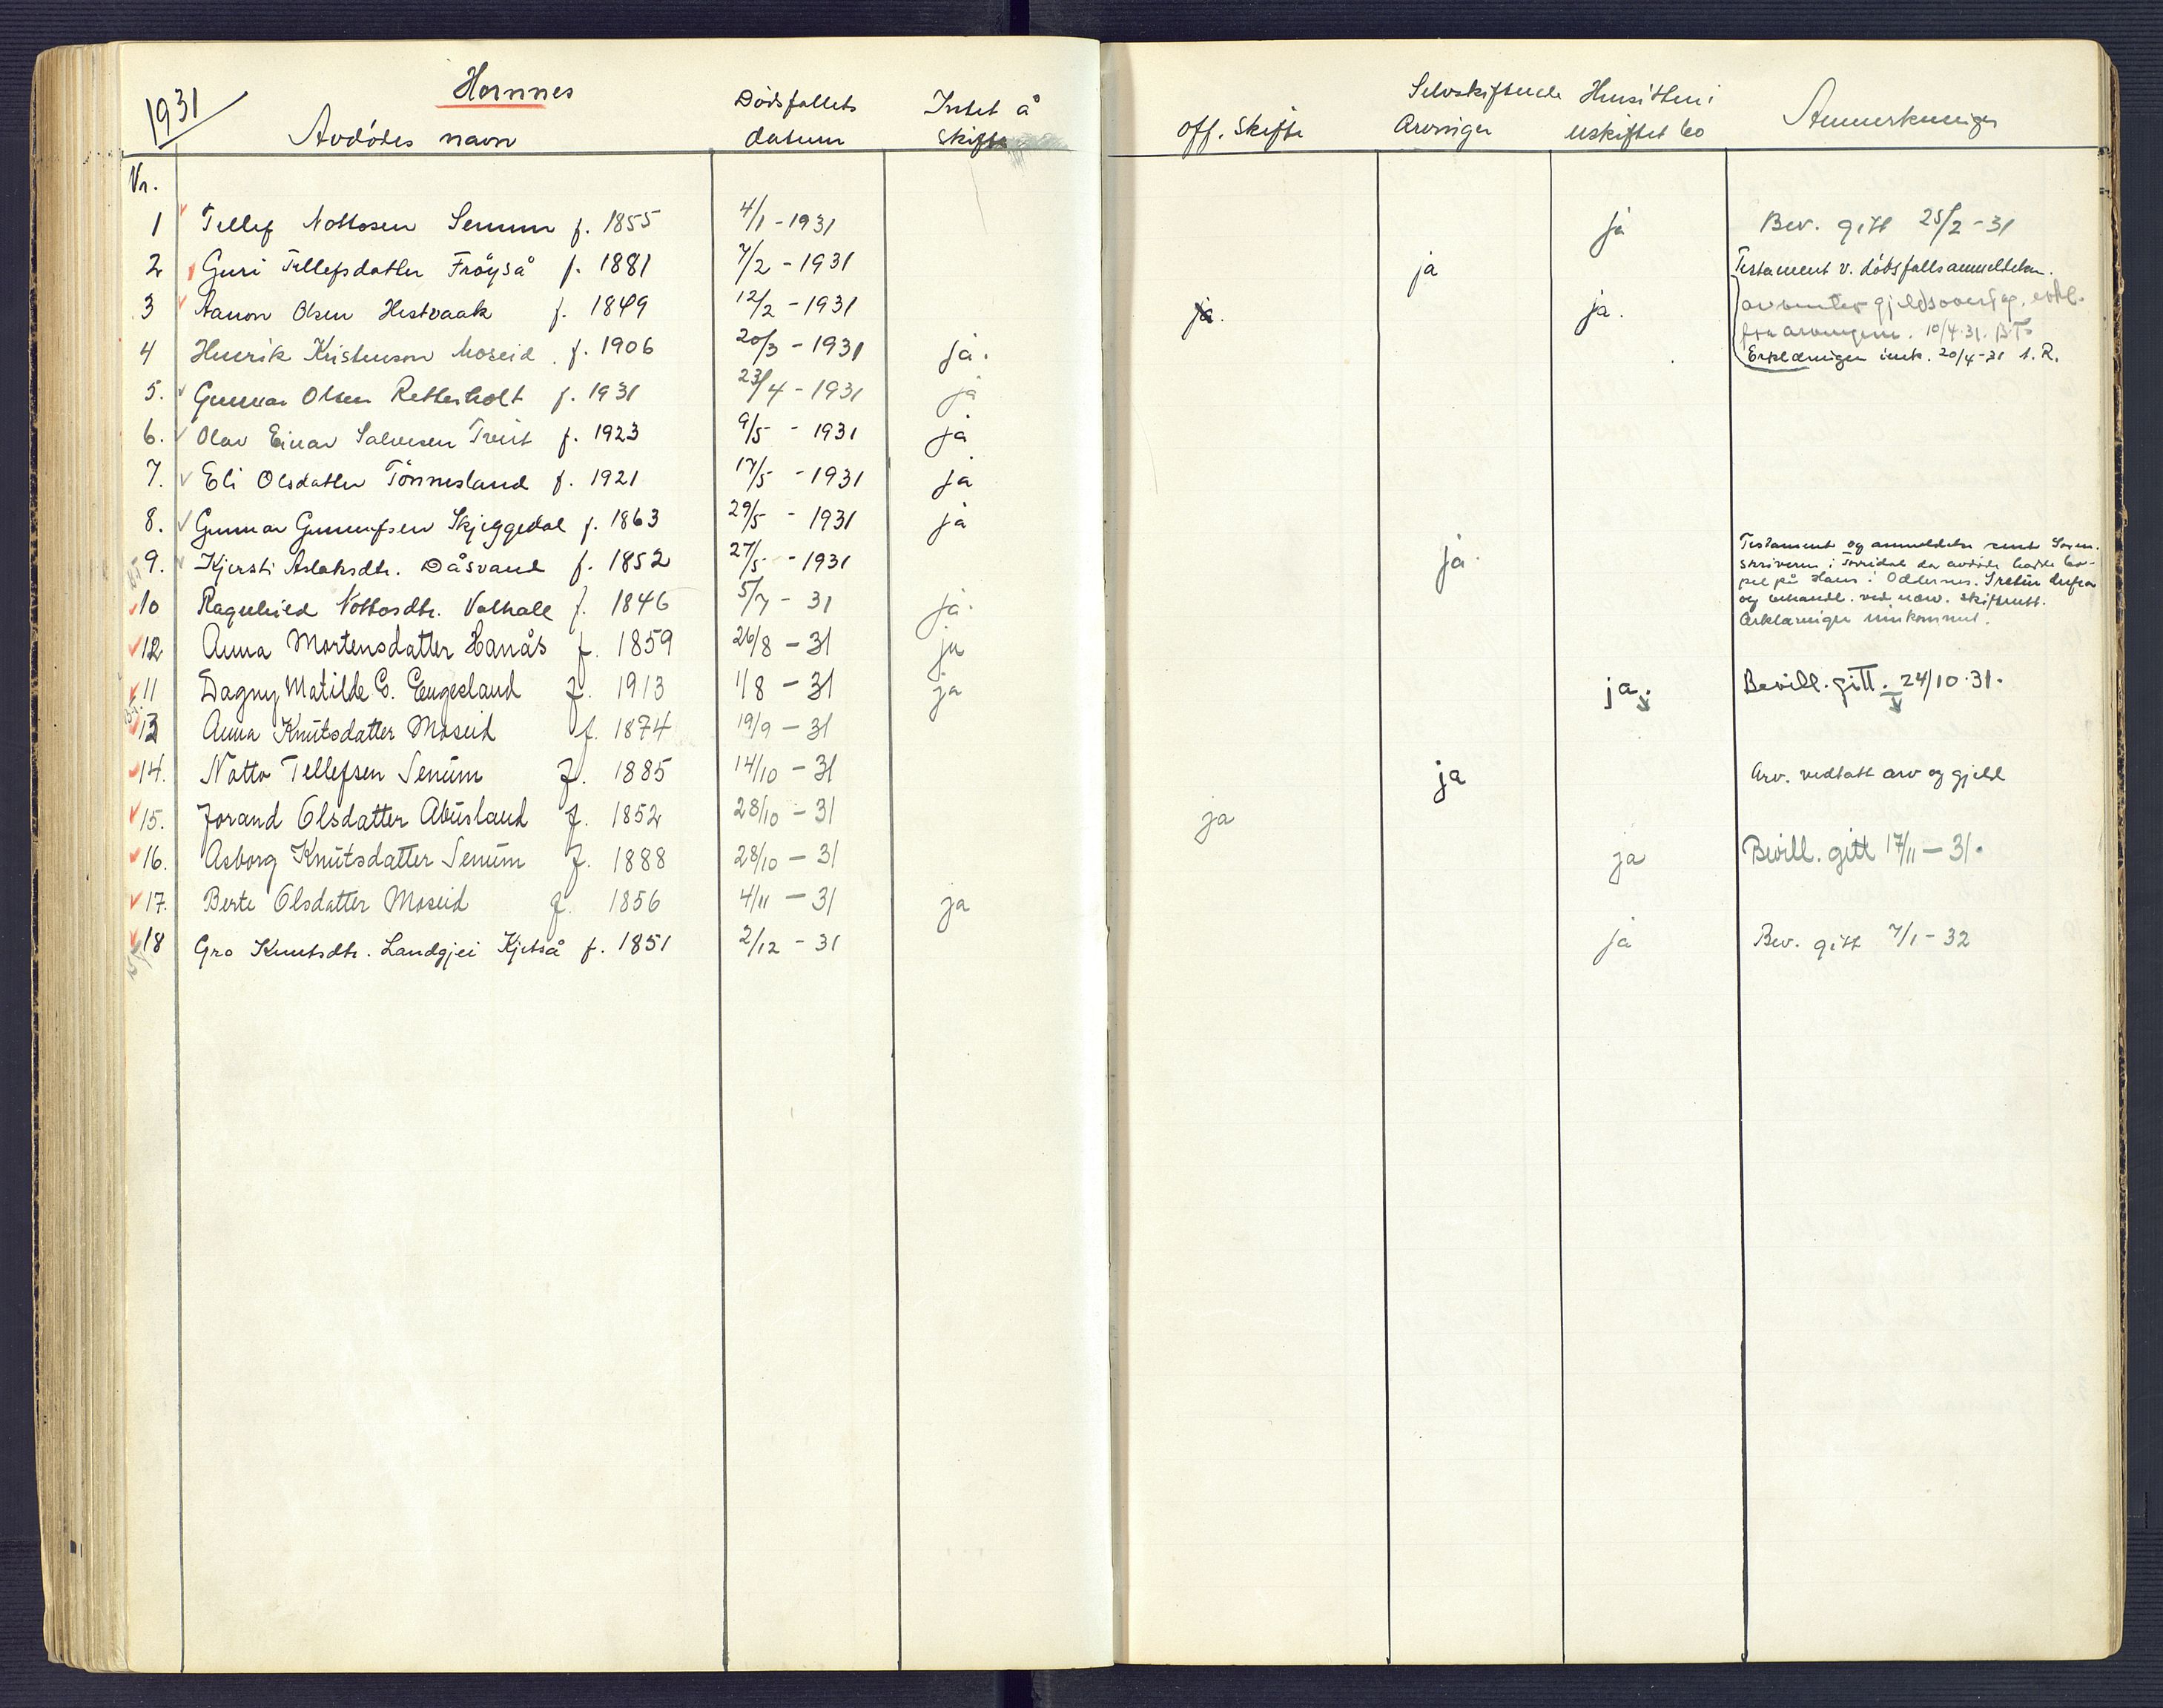 1931 Hornnes
Avdødes navn Dødsfallets datum Intet å skifte off. Skifte Selvskiftende Arvinger Hensitten i uskiftet bo Anmerkninger
Nr.
1 Tellef Nottosen Senum f. 1855 4/1 - 1931 ja Bev. gitt 25/2 - 31
2 Guri Tellefsdatter Frøyså f. 1881 7/2 - 1931 ja Testament v. dødsfallsanmeldelsen.
3 Aanon Olsen Hestvaak f. 1849 12/2 - 1931 ja. ja. avventer gjeldsovertag. erkl.
fra arvingene. 10/4.31. BTs
4 Henrik Kristenson Moseid. f. 1906 20/3 - 1931 ja. Erklæringen innk. 20/4-31 S. R.
5. Gunnar Olsen Retterholt f. 1931 23/4 - 1931 ja
6. Olav Einar Salvesen Treit f. 1923 9/5 - 1931 ja
7. Eli Olsdatter Tønnesland f. 1921 17/5 - 1931 ja
8. Gunnar Gunnufsen Skjeggedal f. 1863 29/5 - 1931 ja
9. Kjersti Aslaksdtr. Dåsvand f. 1852 27/5 - 1931 ja. Testament og anmeldelse sendt Soren-
skriveren i Torridal da avdøde hadde bo-
pel på Hans i Oddernes. Iretur derfra
og behandl. ved nærv. skifterett.
Erklæringen innkommet.
10 Ragnhild Nottosdtr. Valhall f. 1846 5/7 - 31 ja.
12 Anna Mortensdatter Hanås f. 1859 26/8 - 31 ja
11 Dagny Matilde G. Engesland f. 1913 1/8 - 31 ja ja. Bevill. gitt. 24/10.31.
13 Anna Knutsdatter Moseid f. 1874 19/9 - 31
14. Notto Tellefsen Senum f. 1885 14/10 - 31 ja Arv. vedtatt arv og gjeld
15. Jorand Olsdatter Abusland f. 1852 28/10 - 31 ja
16. Asborg Knutsdatter Senum f. 1888 28/10 - 31 ja Bevill. gitt 17/11 - 31.
17. Berte Olsdatter Moseid f. 1856 4/11 - 31 ja
18 Gro Knutsdtr. Landgjei Kjetså f. 1851 2/12 - 31 ja Bev. gitt 7/1 - 32